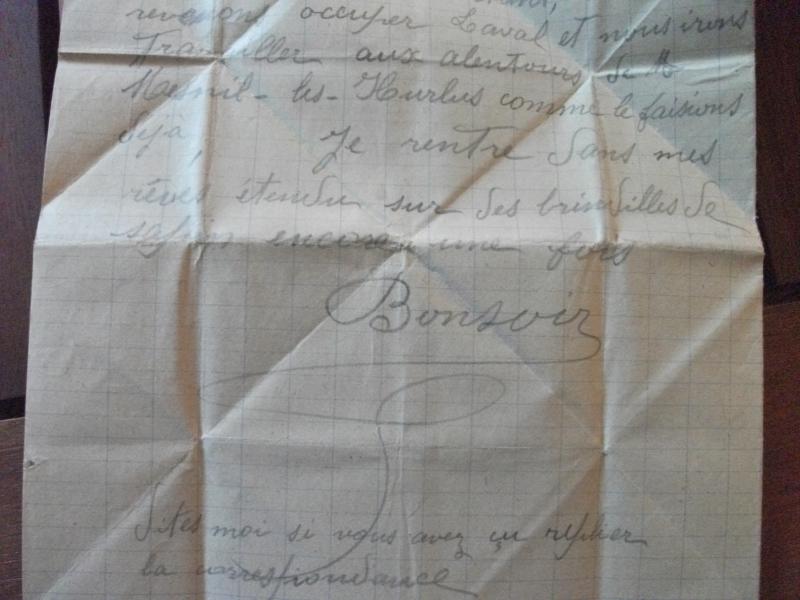 revenons occuper Laval et nous irons
travailler aux alentours de
Mesnil-les-Hurlus comme le faisions
déjà, Je rentre dans mes
rêves étendu sur des brindilles de
sapin encore une fois
Bonsoir
Dites moi si vous avez su replier
la correspondance